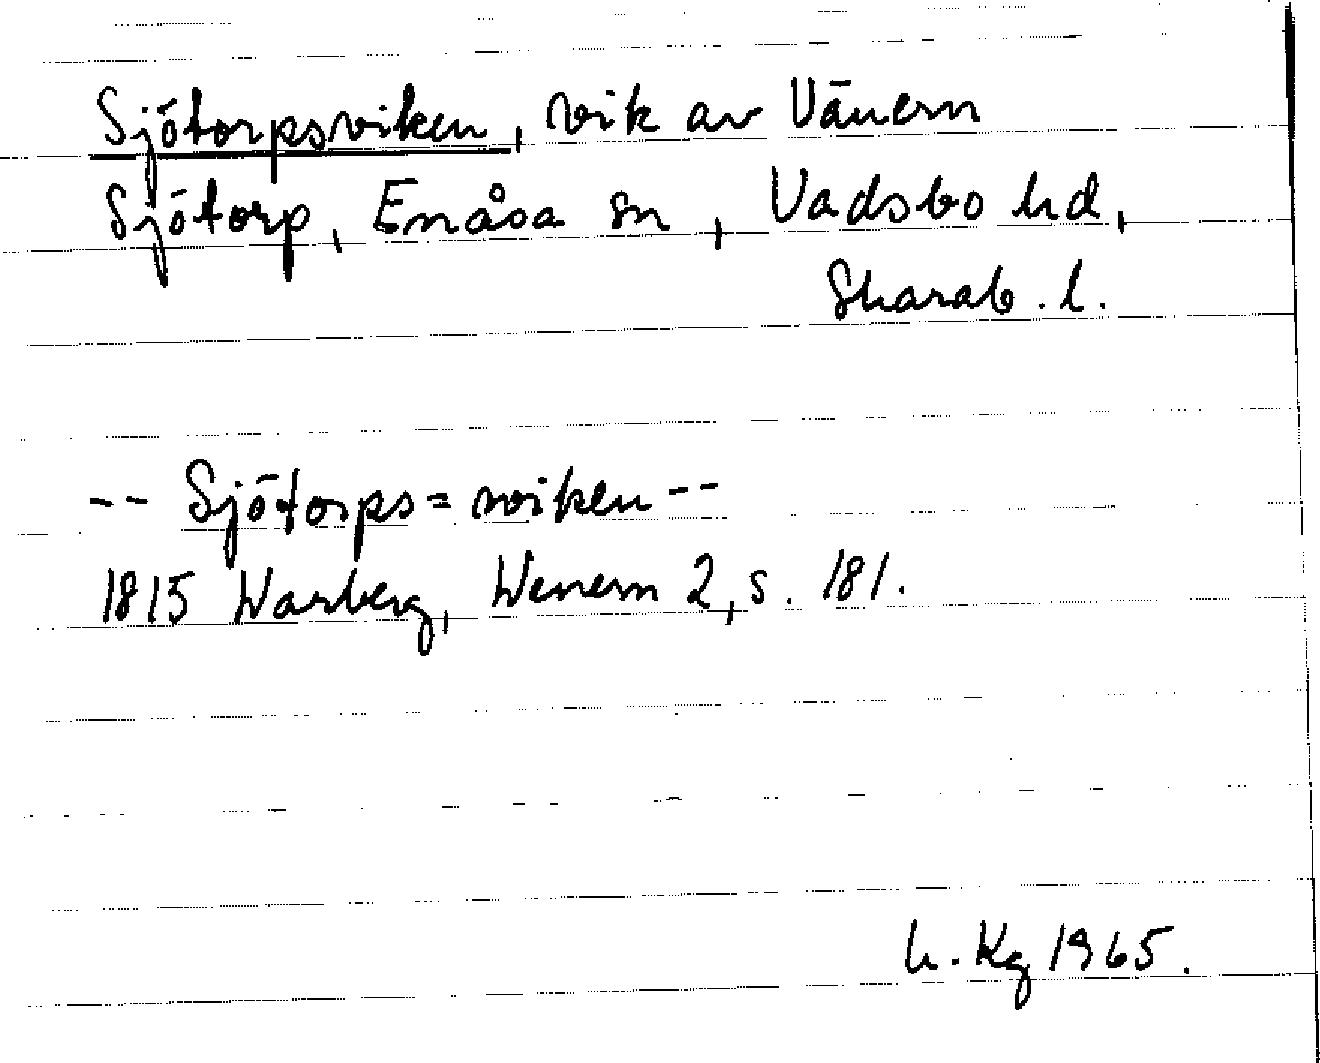 Sjötorpsviken, vik av Vänern
Sjötorp, Enåsa sn, Vadsbo hd,
Skarab. l.
-- Sjötorps=wiken --
1815 Warberg, Wenern 2, s. 181.
h. Kg 1965.